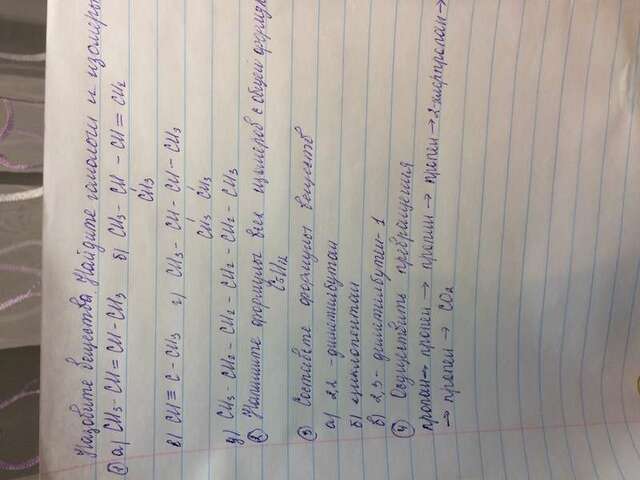 Назовите вещества. Найдите гомологи и изомеры
① а) CH3 - CH = CH - CH3 б) CH3 - CH - CH = CH2
CH3
в) CH ≡ C - CH3 г) CH3 - CH - CH - CH3
CH3 CH3
д) CH3 - CH2 - CH2 - CH2 - CH2 - CH3
② Напишите формулы всех изомеров с общей формулой
C5H12
③ Составьте формулы веществ
а) 2,2 - диметилбутан
б) циклопентан
в) 2,3 - диметилбутен-1
④ Осуществить превращения
пропан → пропен → пропин → пропен → 2-хлорпропан →
→ пропен → CO2